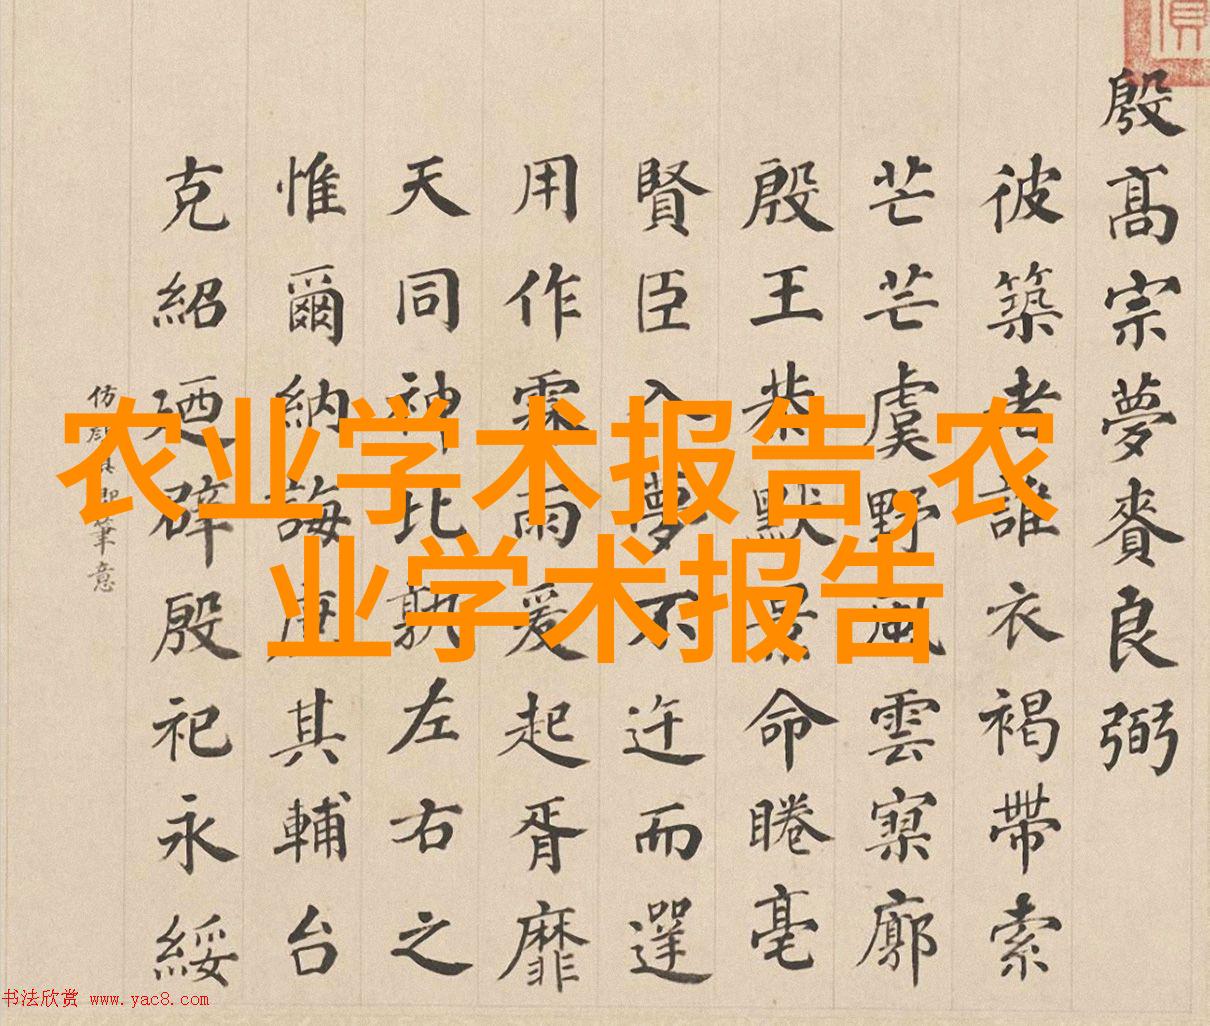 殷髙宗夢賚良弼
彼築者誰衣褐帶索
芒芒虞野風雲廓
殷王恭默景命睠亳
賢臣入夢不迕而遻
用作霖雨爰起胥靡
天同神比孰左右之
惟爾納誨庸其輔台
克紹廼辟殷祀永綏
仿筆意
农业学术报告,农
业学术报告
书法欣赏 www.yac8.com